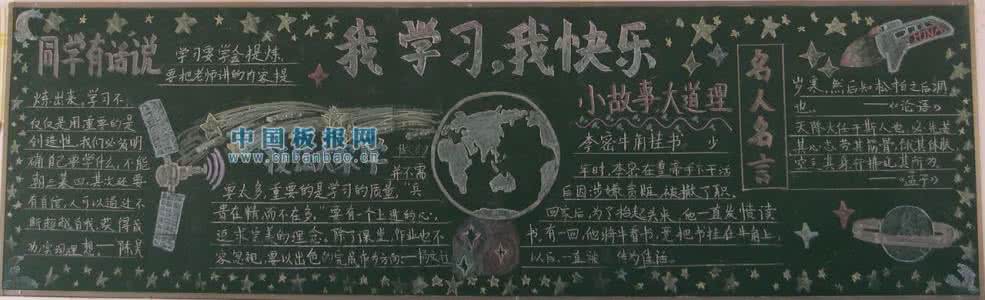 我学习,我快乐
同学有话说
学习要学会提炼,
要把老师讲的内容提
炼出来,学习不
仅仅是用重要的是
创造性,我们必须明
确自己学什么,不能
朝三暮四,其次还要
有自信,人可以通过不
断超越自我,获得成
为实现理想。——陈
中国板报网
www.cnbanbao.cn
并不需
要太多重要的是学习的质量,"兵
贵在精,而不在多,要有一个上进的心,
追求完美的理念。除了课堂,作业也不
容忽视,要以出色的完成作为方向。
小故事大道理
李密牛角挂书 少
年时,李密在皇帝手下干活
后因涉嫌 被撤了职
回家后,为了抬起头来,他一直发愤读
书,有一回,他骑牛看书,竟把书挂在牛角上,
以后,一直被 传为佳话。
名人名言
岁寒,然后知松柏之后凋
也。——《论语》
天降大任于斯人也,必先苦
其心志,劳其筋骨,饿其体肤,
空乏其身,行拂乱其所为。
——《孟子》